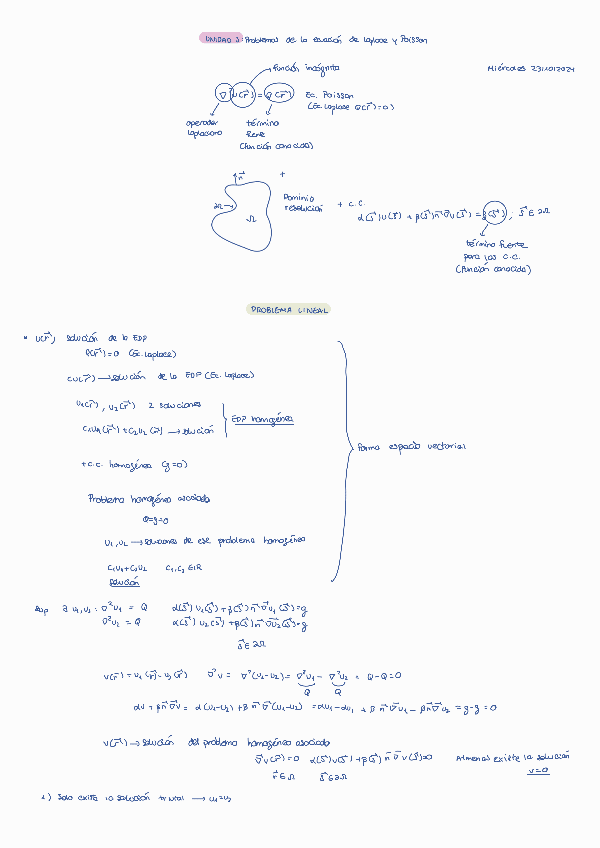 UNIDAD 3: Problemas de la ecuación de Laplace y Poisson
Miércoles 23/10/2024
función incógnita
∇²u(r⃗) = Q(r⃗) Ec. Poisson
(Ec. Laplace Q(r⃗)=0)
operador laplaciano
término fuente
(función conocida)
n⃗
+
∂Ω
Ω
Dominio resolución
+ C.C.
α(s⃗)u(s⃗) + β(s⃗)n⃗·∇⃗u(s⃗) = g(s⃗), s⃗ ∈ ∂Ω
término fuente
para las C.C.
(función conocida)
PROBLEMA LINEAL
* u(r⃗) solución de la EDP
Q(r⃗)=0 (Ec. Laplace)
cu(r⃗) → solución de la EDP (Ec. Laplace)
u₁(r⃗), u₂(r⃗) 2 soluciones
c₁u₁(r⃗)+c₂u₂(r⃗) → solución
EDP homogénea
+ c.c. homogénea (g=0)
Forma espacio vectorial
Problema homogéneo asociado
Q=g=0
u₁,u₂ → soluciones de ese problema homogéneo
c₁u₁+c₂u₂ c₁,c₂ ∈ ℝ
solución
Sup ∃ u₁,u₂ : ∇²u₁ = Q α(s⃗) u₁(s⃗)+β(s⃗) n⃗ ∇⃗u₁(s⃗)=g
∇²u₂ = Q α(s⃗) u₂(s⃗)+β(s⃗) n⃗ ∇⃗u₂(s⃗)=g
s⃗ ∈ ∂Ω
v(r⃗) = u₁(r⃗)-u₂(r⃗) ∇²v = ∇²(u₁-u₂) = ∇²u₁ - ∇²u₂ = Q-Q=0
Q Q
αv + βn⃗∇⃗v = α(u₁-u₂) + β n⃗ ∇⃗(u₁-u₂) = αu₁-αu₂ + β n⃗ ∇⃗u₁ - βn⃗∇⃗u₂ = g-g = 0
v(r⃗) → solución del problema homogéneo asociado
∇²v(r⃗)=0 α(s⃗)v(s⃗)+β(s⃗) n⃗ ∇⃗v(s⃗)=0 Al menos existe la solución
r⃗ ∈ Ω s⃗ ∈ ∂Ω v=0
1) Solo existe la solución trivial → u₁=u₂